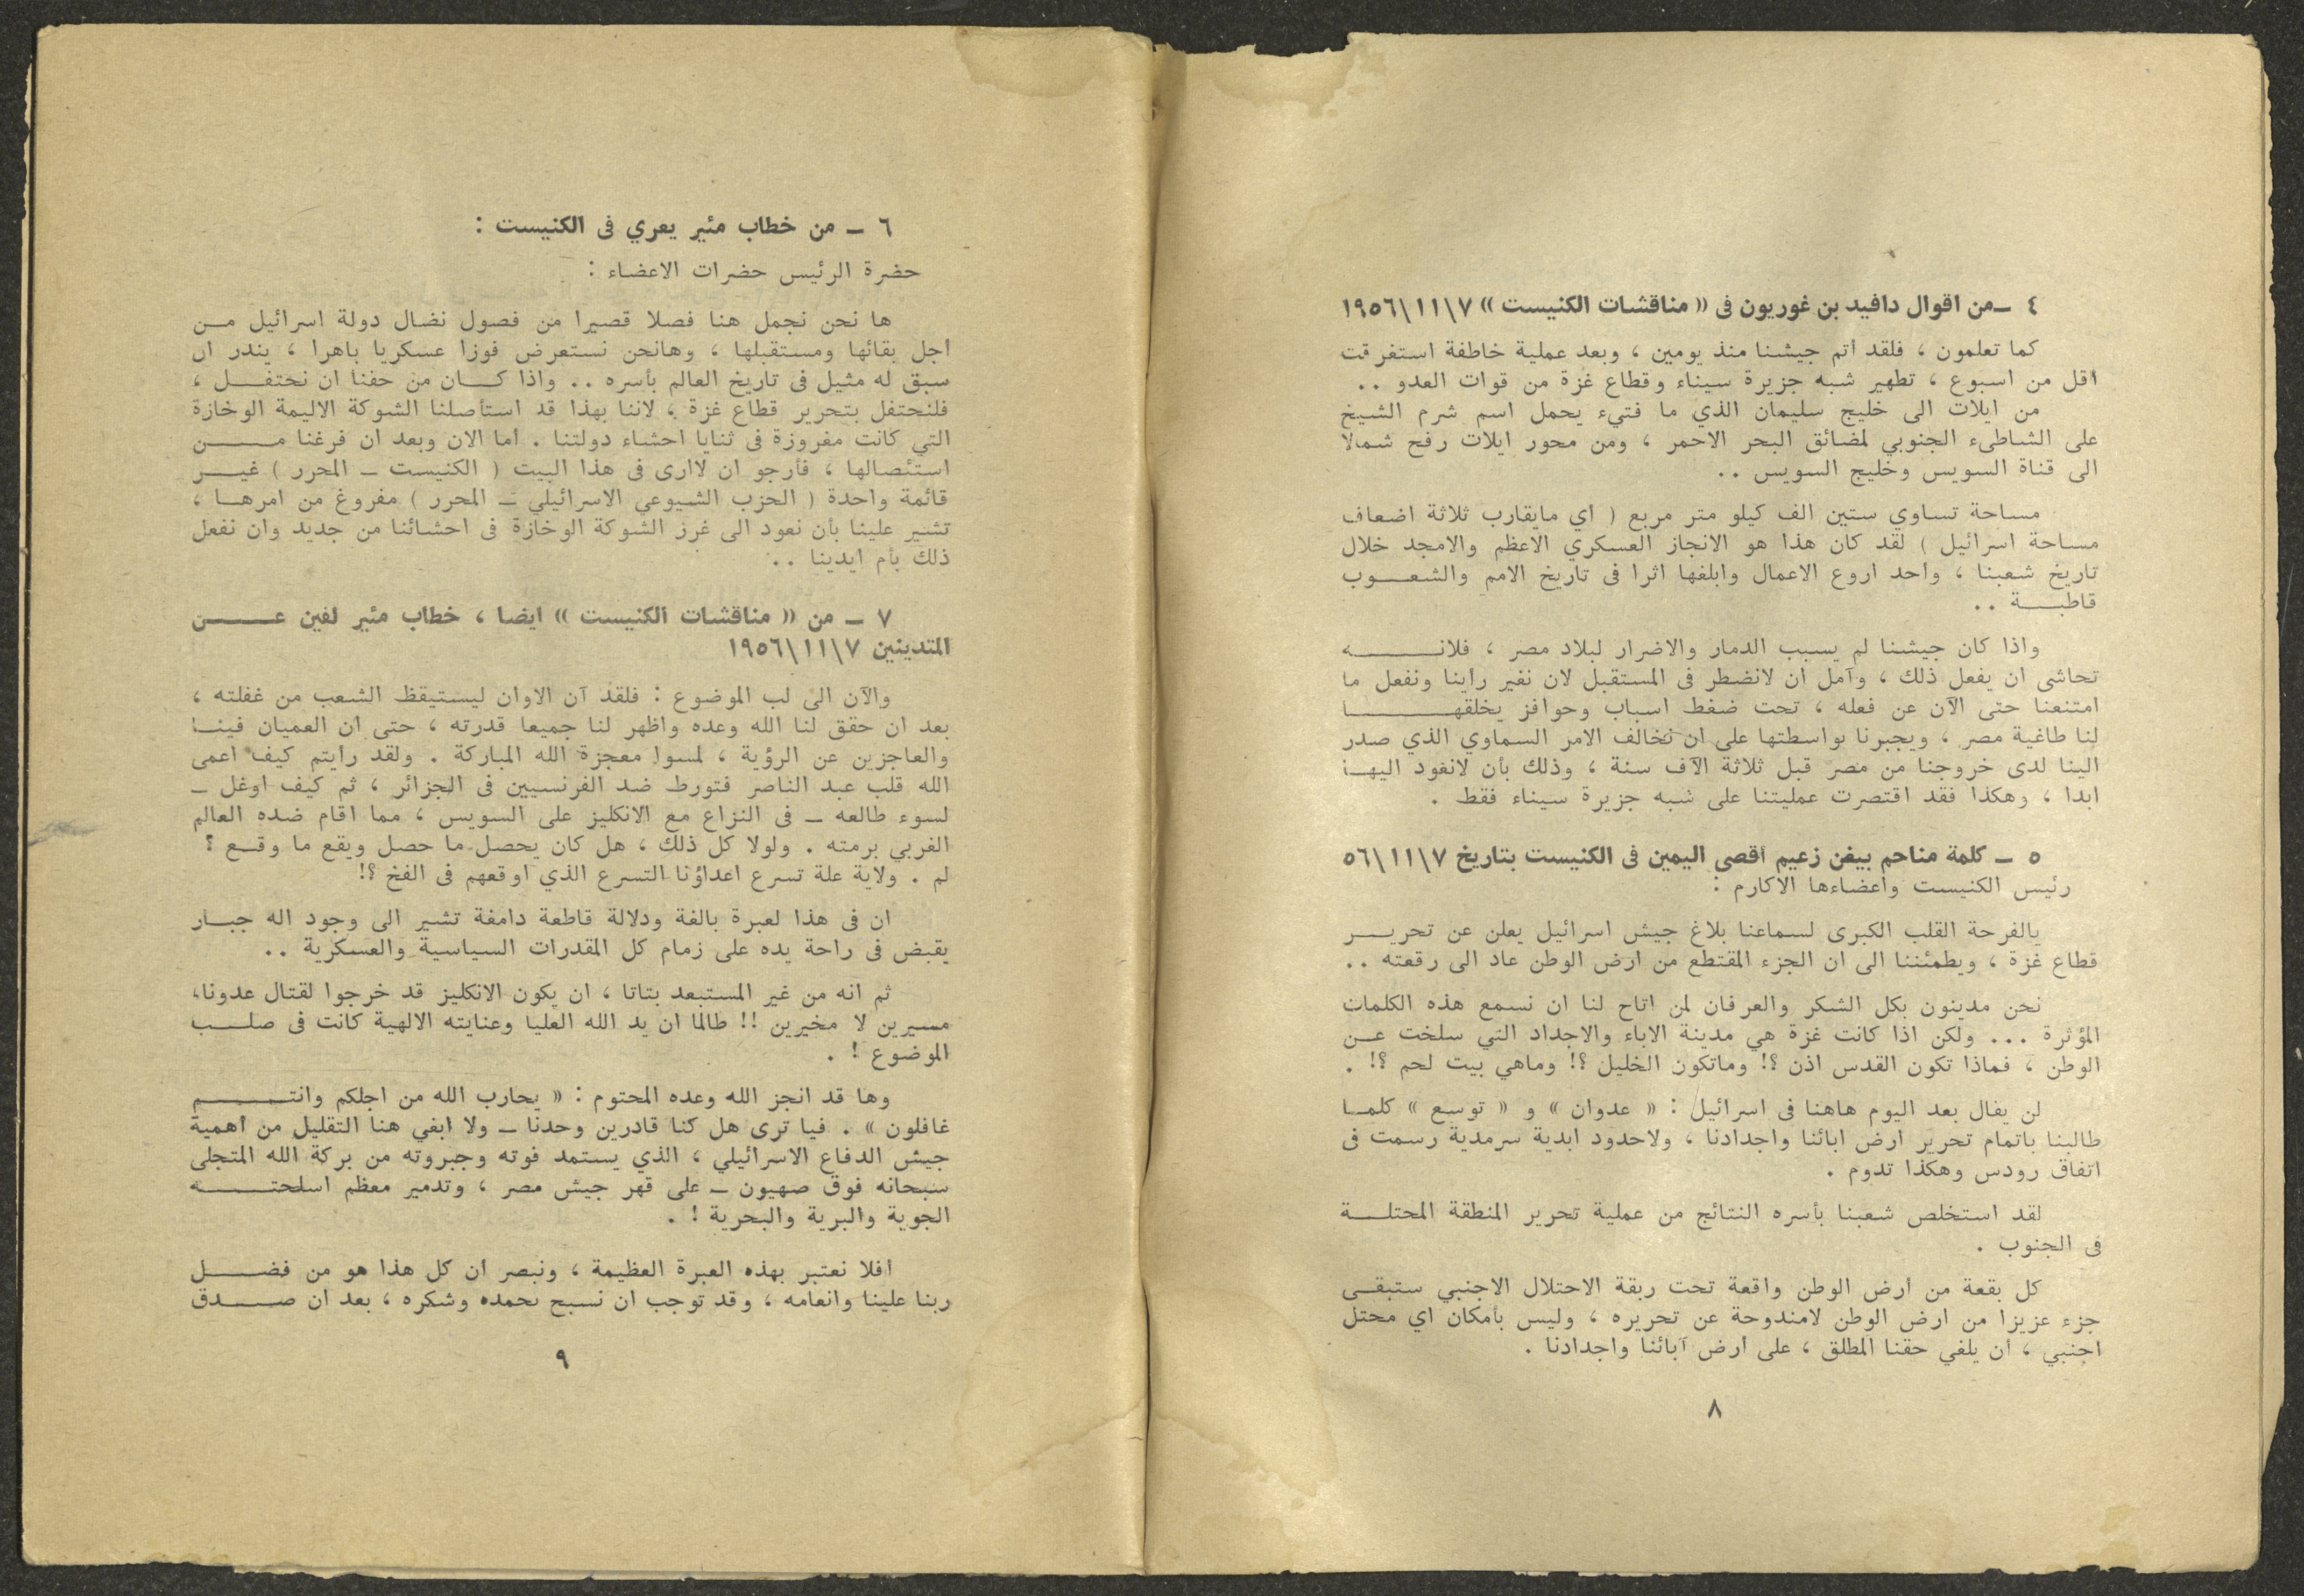 ٤ ــ من اقوال دافيد بن غوريون فى « مناقشات الكنيست » ٧\١١\١٩٥٦
كما تعلمون ، فلقد أتم جيشنا منذ يومين ، وبعد عملية خاطفة استغرقت
أقل من اسبوع ، تطهير شبه جزيرة سيناء وقطاع غزة من قوات العدو ..
من ايلات الى خليج سليمان الذي ما فتيء يحمل اسم شرم الشيخ
على الشاطىء الجنوبي لمضائق البحر الاحمر ، ومن محور ايلات رفح شمالا
الى قناة السويس وخليج السويس ..
مساحة تساوي ستين الف كيلو متر مربع ( أي مايقارب ثلاثة اضعاف
مساحة اسرائيل ) لقد كان هذا هو الانجاز العسكري الاعظم والامجد خلال
تاريخ شعبنا ، واحد اروع الاعمال وابلغها اثرا فى تاريخ الامم والشعوب
قاطبة ..
واذا كان جيشنا لم يسبب الدمار والاضرار لبلاد مصر ، فلانه
تحاشى ان يفعل ذلك ، وآمل ان لانضطر فى المستقبل لان نغير رأينا ونفعل ما
امتنعنا حتى الآن عن فعله ، تحت ضغط اسباب وحوافز يخلقها
لنا طاغية مصر ، ويجبرنا بواسطتها على ان نخالف الامر السماوي الذي صدر
الينا لدى خروجنا من مصر قبل ثلاثة الآف سنة ، وذلك بأن لانعود اليها
ابدا ، وهكذا فقد اقتصرت عمليتنا على شبه جزيرة سيناء فقط .
٥ ــ كلمة مناحم بيغن زعيم أقصى اليمين فى الكنيست بتاريخ ٧\١١\٥٦
رئيس الكنيست واعضاءها الاكارم :
يالفرحة القلب الكبرى لسماعنا بلاغ جيش اسرائيل يعلن عن تحرير
قطاع غزة ، ويطمئننا الى ان الجزء المقتطع من ارض الوطن عاد الى رقعته ..
نحن مدينون بكل الشكر والعرفان لمن اتاح لنا ان نسمع هذه الكلمات
المؤثرة ... ولكن اذا كانت غزة هي مدينة الاباء والاجداد التي سلخت عن
الوطن ، فماذا تكون القدس اذن ؟! وماتكون الخليل ؟! وماهي بيت لحم ؟! .
لن يقال بعد اليوم هاهنا فى اسرائيل : « عدوان » و « توسع » كلما
طالبنا باتمام تحرير ارض ابائنا واجدادنا ، ولاحدود ابدية سرمدية رسمت فى
اتفاق رودس وهكذا تدوم .
لقد استخلص شعبنا بأسره النتائج من عملية تحرير المنطقة المحتلة
فى الجنوب .
كل بقعة من أرض الوطن واقعة تحت ربقة الاحتلال الاجنبي ستبقى
جزء عزيزا من ارض الوطن لامندوحة عن تحريره ، وليس بأمكان اي محتل
اجنبي ، أن يلغي حقنا المطلق ، على أرض آبائنا واجدادنا .
٨
٦ ــ من خطاب مئير يعري فى الكنيست :
حضرة الرئيس حضرات الاعضاء :
ها نحن نجمل هنا فصلا قصيرا من فصول نضال دولة اسرائيل من
اجل بقائها ومستقبلها ، وهانحن نستعرض فوزا عسكريا باهرا ، يندر ان
سبق له مثيل فى تاريخ العالم بأسره .. واذا كان من حقنا ان نحتفل ،
فلنحتفل بتحرير قطاع غزة ، لاننا بهذا قد استأصلنا الشوكة الاليمة الوخازة
التي كانت مغروزة فى ثنايا احشاء دولتنا . أما الان وبعد ان فرغنا من
استئصالها ، فأرجو ان لاارى فى هذا البيت ( الكنيست ــ المحرر ) غير
قائمة واحدة ( الحزب الشيوعي الاسرائيلي ــ المحرر ) مفروغ من امرها ،
تشير علينا بأن نعود الى غرز الشوكة الوخازة فى احشائنا من جديد وان نفعل
ذلك بأم ايدينا ..
٧ ــ من « مناقشات الكنيست » ايضا ، خطاب مئير لفين عن
المتدينين ٧\١١\١٩٥٦
والآن الى لب الموضوع : فلقد آن الاوان ليستيقظ الشعب من غفلته ،
بعد ان حقق لنا الله وعده واظهر لنا جميعا قدرته ، حتى ان العميان فينا
والعاجزين عن الرؤية ، لمسوا معجزة الله المباركة . ولقد رأيتم كيف اعمى
الله قلب عبد الناصر فتورط ضد الفرنسيين فى الجزائر ، ثم كيف اوغل ــ
لسوء طالعه ــ فى النزاع مع الانكليز على السويس ، مما اقام ضده العالم
الغربي برمته . ولولا كل ذلك ، هل كان يحصل ما حصل ويقع ما وقع ؟
لم . ولاية علة تسرع اعداؤنا التسرع الذي اوقعهم فى الفخ ؟!
ان فى هذا لعبرة بالغة ودلالة قاطعة دامغة تشير الى وجود اله جبار
يقبض فى راحة يده على زمام كل المقدرات السياسية والعسكرية ..
ثم انه من غير المستبعد بتاتا ، ان يكون الانكليز قد خرجوا لقتال عدونا،
مسيرين لا مخيرين !! طالما ان يد الله العليا وعنايته الالهية كانت فى صلب
الموضوع ! .
وها قد انجز الله وعده المحتوم : « يحارب الله من اجلكم وانتم
غافلون » . فيا ترى هل كنا قادرين وحدنا ــ ولا ابغي هنا التقليل من أهمية
جيش الدفاع الاسرائيلي ، الذي يستمد قوته وجبروته من بركة الله المتجلي
سبحانه فوق صهيون ــ على قهر جيش مصر ، وتدمير معظم اسلحته
الجوية والبرية والبحرية ! .
أفلا نعتبر بهذه العبرة العظيمة ، ونبصر ان كل هذا هو من فضل
ربنا علينا وانعامه ، وقد توجب ان نسبح بحمده وشكره ، بعد ان صدق
٩